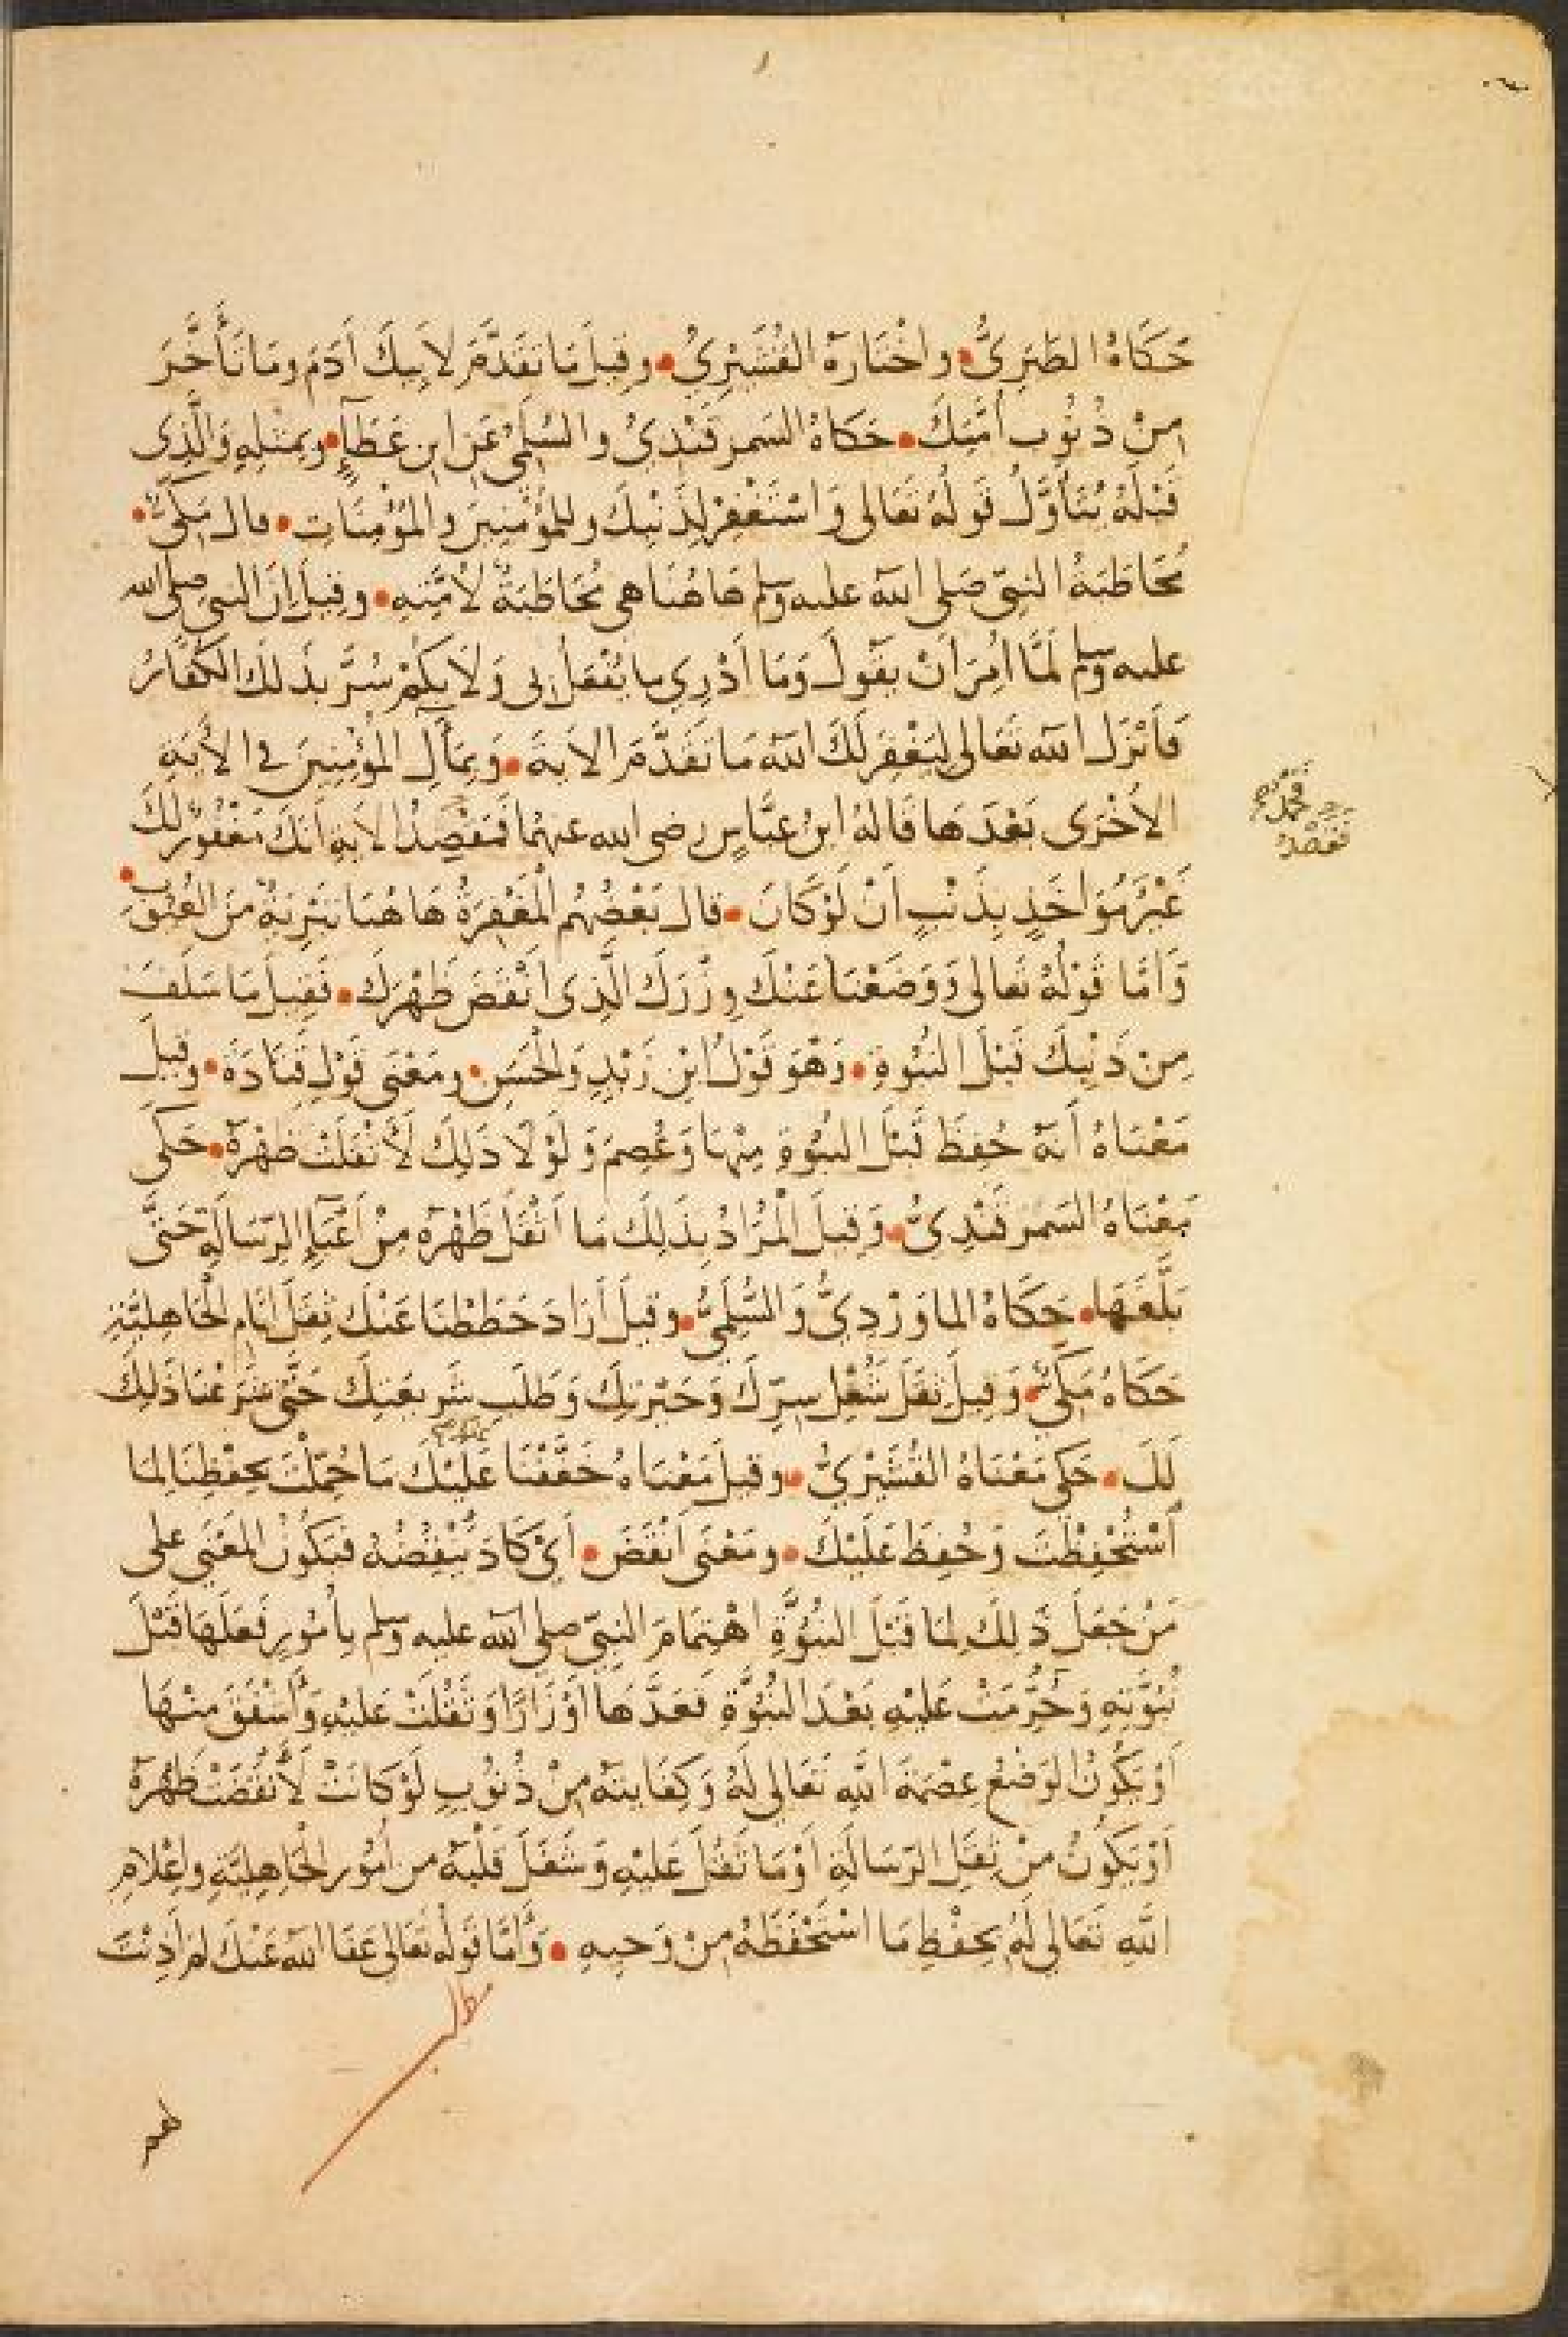 حَكَاهُ الطَبَرِيُّ • واخْتَارَهُ القُشَيْرِيُ • وقِيلَ مَا تَقَدَّمَ لِأَبِيكَ آدَمَ ومَا تَأَخَّرَ
مِنْ ذُنُوبِ أُمَّتِكَ • حَكَاهُ السَمَرقَنْدِيُ والسُلَمِيُ عَنِ ابنِ عَطَاءٍ • وبِمِثْلِهِ وَالَّذِى
قَبْلَهُ يُتَأَوَّلُ قَولُهُ تَعَالى وَاسْتَغْفِرْ لِذَنْبِكَ وللمُؤْمِنِينَ والمُؤْمِنَاتِ • قال مَكِّيٌّ •
مُخَاطَبَةُ النبِيّ صَلى اللهُ عليه وسلم هَاهُنَا هي مُخَاطَبَةٌ لأُمَّتِهِ • وقِيلَ إنَ النبي صلى الله
عليه وسلم لَمَّا أُمِرَ أنْ يقُولَ وَمَا أدْرِي ما يُفْعَلُ بى وَلَا بِكُمْ سُرَّ بذَلكَ الكُفَّارُ
فَأَنْزَلَ الله تَعَالى لِيَغْفِرَ لَكَ اللهُ مَا تَقَدَّمَ الايةَ • وَبِمَآلِ المُؤْمِنِينَ في الأيَةِ
الأخْرَى بَعْدَهَا قَالهُ ابنُ عبَّاسٍ رضى الله عنهما فَمَقْصِدُ الاَيةِ أنَكَ مَغْفُورٌ لَكَ
غَيْرُ مُؤَاخَذٍ بِذَنْبٍ أنْ لَوْ كَانَ • قال بَعْضُهُم الْمَغْفِرَةُ هَاهُنا تَبْرِئةٌ مِنَ العُيُوْبِ •
وَأمَّا قَوْلُهُ تَعالى وَوَضَعْنَا عَنْكَ وِزْرَكَ الَّذِى أنْقَضَ ظَهْرَكَ • فَقِيلَ مَا سَلَفَ
مِنْ ذَنْبِكَ قَبْلَ النُبُوةِ • وَهْوَ قَوْلُ ابْنِ زَيْدٍ وَالْحَسَنِ • ومَعْنَى قَوْلِ قَتَادَةَ • وقِيلَ
مَعْنَاهُ أَنهُ حُفِظَ قَبْلَ النبُوةِ مِنْهَا وَعُصِمَ وَلَوْلَا ذَلِكَ لَأَثْقَلَتْ ظَهْرَهُ • حَكَى
مَعْنَاهُ السَمَرقَنْدِىُّ • وَقِيلَ الْمُرَادُ بِذَلِكَ مَا أَثْقَلَ ظَهْرَهُ مِنْ أَعْبَاءِ الرِسَالَةِ حَتَّى
بَلَّغَهَا • حَكَاهُ الماوَرْدِيُّ وَالسُّلَمِيُّ • وقِيلَ أَرَادَ حَطَطْنَا عَنْكَ ثِقَلَ ايَّامِ الْجَاهِلِيَّةِ
حَكَاهُ مَكِّيٌّ • وَقِيلَ ثِقَلَ شُغْلِ سِرِّكَ وَحَيْرَتِكَ وَطَلَبِ شَريعَتِكَ حَتَّى شَرَعْنَا ذَلِكَ
لَكَ • حَكَى مَعْنَاهُ القُشَيْرِيُّ • وقِيلَ مَعْنَاهُ خَفَّفْنَا عَلَيْكَ مَا حُمِّلْتَ بِحِفْظِنَا لِمَا
اسْتُحْفِظْتَ وَحُفِظَ عَلَيْكَ • ومَعْنَى أنْقَضَ • أىْ كَادَ يَنْقِضُهُ فيَكُونُ الْمَعْنَى على
مَنْ جَعَلَ ذَلِكَ لِمَا قَبْلَ النُبُوَّةِ اهْتِمَامَ النبِيّ صلى الله عليه وسلم بِأُمُورٍ فَعَلَهَا قَبْلَ
نُبُوَّتِهِ وَحُرِّمَتْ عَليْهِ بَعْدَ النُبُوَّةِ فَعَدَّهَا أَوْزَارًا وَثَقُلَتْ عَليْهِ وَأَشْفَقَ مِنْهَا
أوْ يَكُونُ الوَضْعُ عِصْمَةَ اللهِ تَعَالى لَهُ وَكِفَايتَهُ مِنْ ذُنُوبٍ لَوْ كانَتْ لَأَنْقَضَتْ ظَهْرَهُ
أوْ يَكُونُ مِنْ ثِقَلِ الرِسَالَةِ أَوْ مَا ثَقُلَ عَليْهِ وَشَغَلَ قَلْبَهُ من أمُورِ الْجَاهِلِيَّةِ وإعْلَامِ
اللهِ تَعَالى لَهُ بِحِفْظِ مَا اسْتَحْفَظَهُ مِنْ وَحْيِهِ • وَأَمَّا قَولُهُ تعَالى عَفَا اللهُ عَنْكَ لِمَ أَذِنْتَ
مطلب